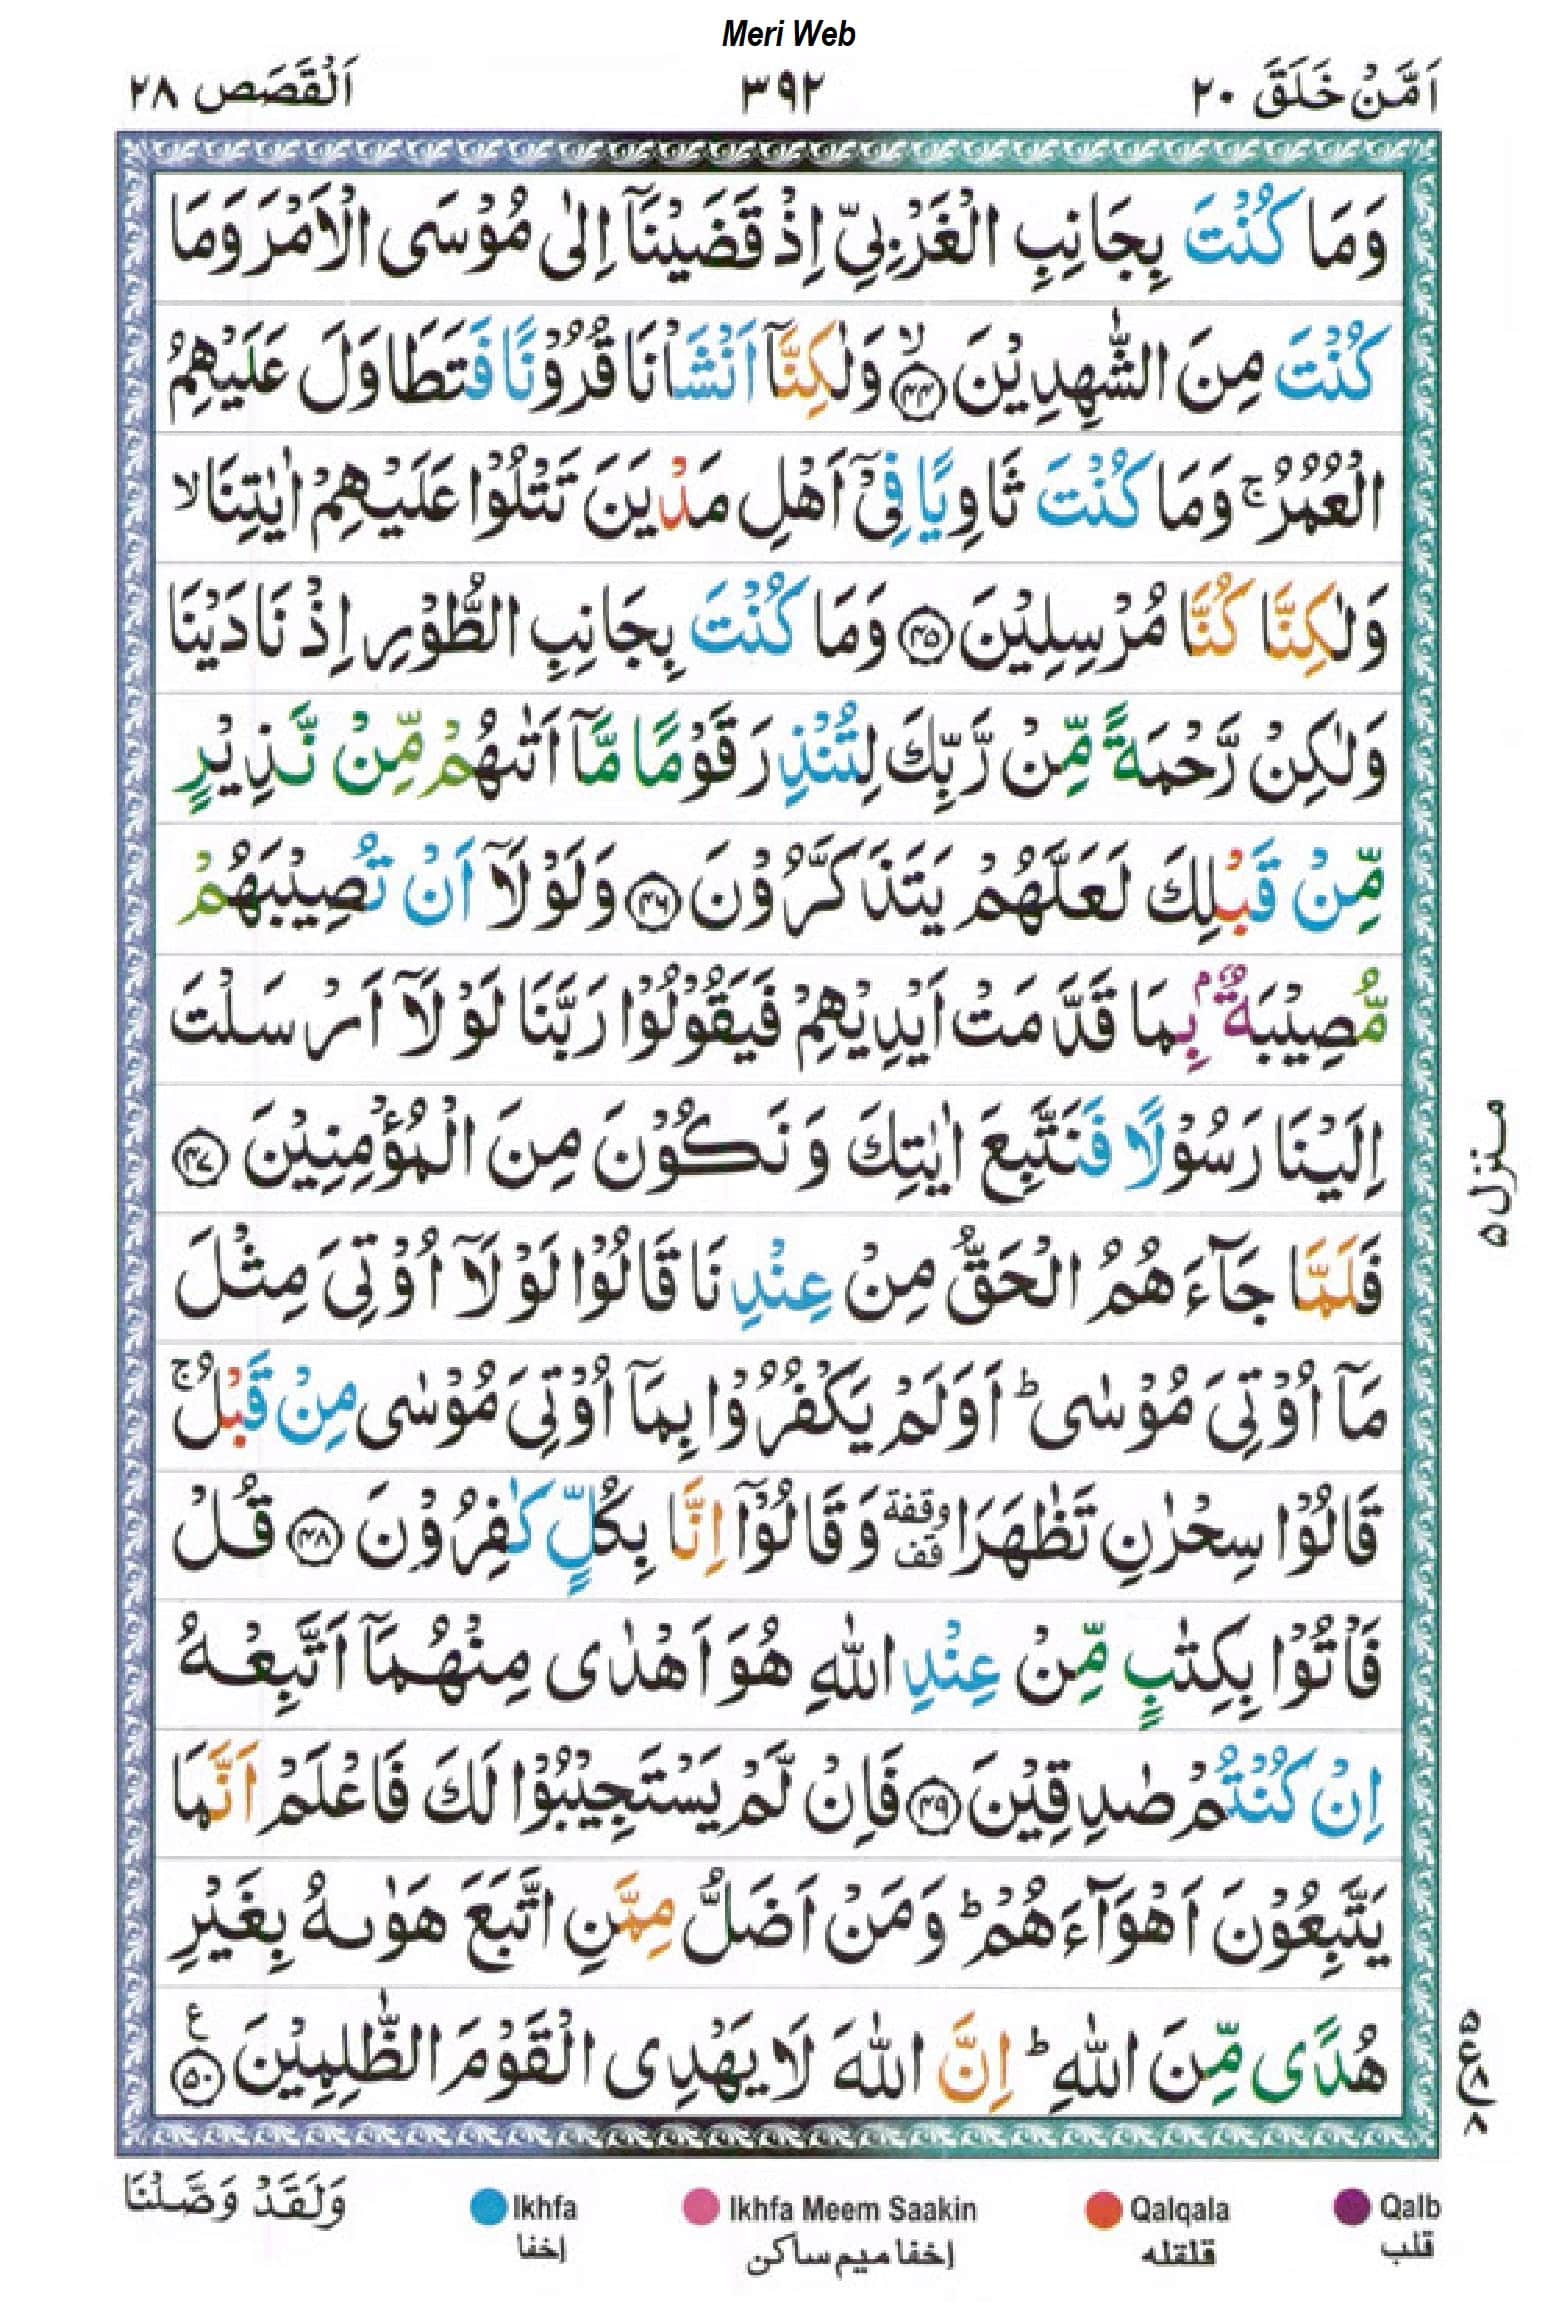 Meri Web
اَمَّنْ خَلَقَ ٢٠ ٣٩٢ اَلْقَصَص ٢٨
وَمَا كُنْتَ بِجَانِبِ الْغَرْبِيِّ اِذْ قَضَيْنَآ اِلٰى مُوْسَى الْاَمْرَ وَمَا
كُنْتَ مِنَ الشّٰهِدِيْنَ ۙ﴿۴۴﴾ وَلٰكِنَّآ اَنْشَاْنَا قُرُوْنًا فَتَطَاوَلَ عَلَيْهِمُ
الْعُمُرُ ۚ وَمَا كُنْتَ ثَاوِيًا فِيْٓ اَهْلِ مَدْيَنَ تَتْلُوْا عَلَيْهِمْ اٰيٰتِنَا ۙ
وَلٰكِنَّا كُنَّا مُرْسِلِيْنَ ﴿۴۵﴾ وَمَا كُنْتَ بِجَانِبِ الطُّوْرِ اِذْ نَادَيْنَا
وَلٰكِنْ رَّحْمَةً مِّنْ رَّبِّكَ لِتُنْذِرَ قَوْمًا مَّآ اَتٰىهُمْ مِّنْ نَّذِيْرٍ
مِّنْ قَبْلِكَ لَعَلَّهُمْ يَتَذَكَّرُوْنَ ﴿۴۶﴾ وَلَوْلَآ اَنْ تُصِيْبَهُمْ
مُّصِيْبَةٌۢ بِمَا قَدَّمَتْ اَيْدِيْهِمْ فَيَقُوْلُوْا رَبَّنَا لَوْلَآ اَرْسَلْتَ
اِلَيْنَا رَسُوْلًا فَنَتَّبِعَ اٰيٰتِكَ وَنَكُوْنَ مِنَ الْمُؤْمِنِيْنَ ﴿۴۷﴾
فَلَمَّا جَآءَهُمُ الْحَقُّ مِنْ عِنْدِنَا قَالُوْا لَوْلَآ اُوْتِيَ مِثْلَ
مَآ اُوْتِيَ مُوْسٰى ؕ اَوَلَمْ يَكْفُرُوْا بِمَآ اُوْتِيَ مُوْسٰى مِنْ قَبْلُ ۚ
قَالُوْا سِحْرٰنِ تَظٰهَرَا وقفة قف وَقَالُوْٓا اِنَّا بِكُلٍّ كٰفِرُوْنَ ﴿۴۸﴾ قُلْ
فَاْتُوْا بِكِتٰبٍ مِّنْ عِنْدِ اللّٰهِ هُوَ اَهْدٰى مِنْهُمَآ اَتَّبِعْهُ
اِنْ كُنْتُمْ صٰدِقِيْنَ ﴿۴۹﴾ فَاِنْ لَّمْ يَسْتَجِيْبُوْا لَكَ فَاعْلَمْ اَنَّمَا
يَتَّبِعُوْنَ اَهْوَآءَهُمْ ؕ وَمَنْ اَضَلُّ مِمَّنِ اتَّبَعَ هَوٰىهُ بِغَيْرِ
هُدًى مِّنَ اللّٰهِ ؕ اِنَّ اللّٰهَ لَا يَهْدِى الْقَوْمَ الظّٰلِمِيْنَ ﴿۵۰﴾ ع
منزل ۵
ع ۵ ۸ ۸
وَلَقَدْ وَصَّلْنَا
Ikhfa Ikhfa Meem Saakin Qalqala Qalb
إخفا إخفا ميم ساكن قلقله قلب